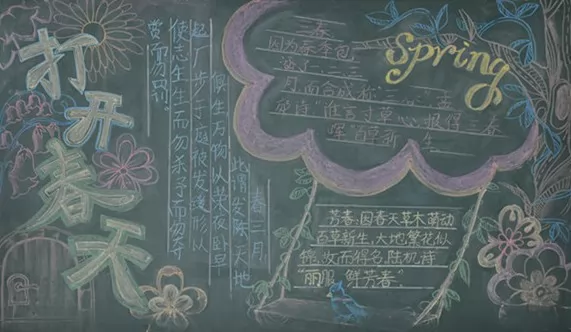 打开春天
春三月
此谓发陈,天地
俱生万物以荣夜卧早
起广步于庭被发缓形以
使志生生而勿杀予而勿夺
赏而勿罚。
Spring
三春
因为春季包
二三
月,而合成称"三春"孟
郊诗"谁言寸草心,报得三春
晖"百草新生
芳春,因春天草木萌动
百草新生,大地繁花似
锦,故而得名,陆机诗
"丽服鲜芳春"